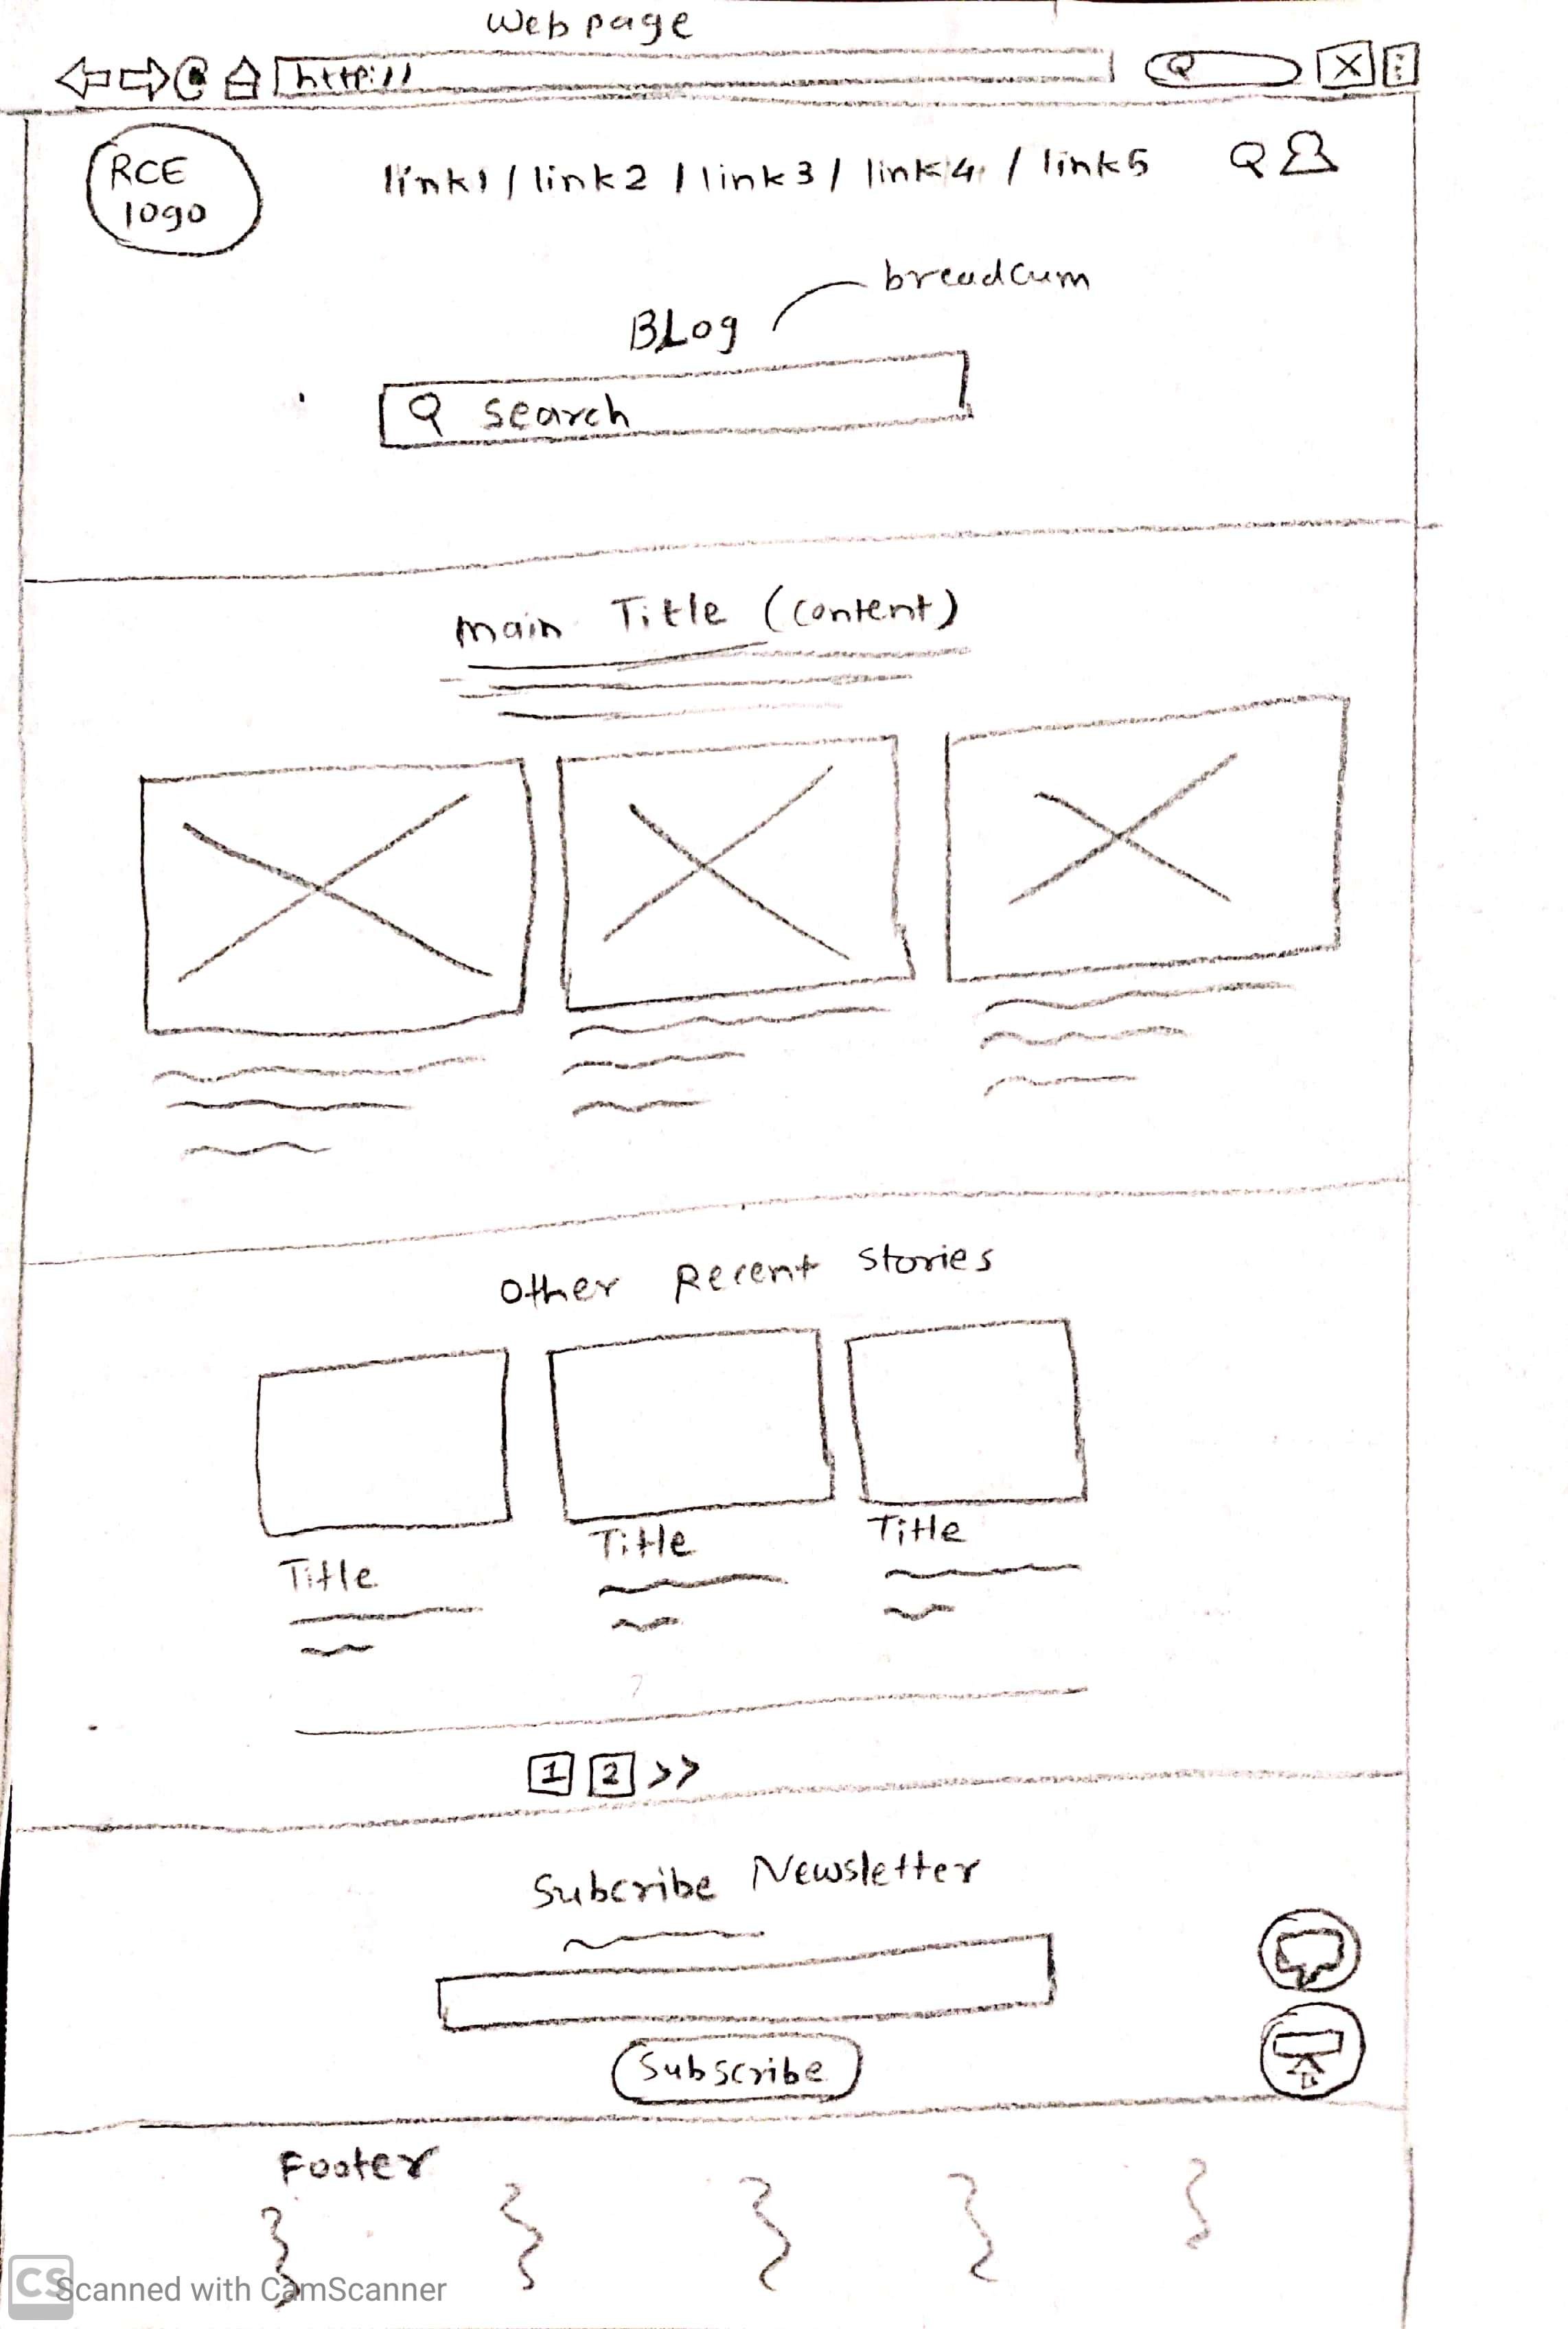 Web page
http://
RCE
logo
link1 / link2 / link3 / link4 / link5
breadcum
BLog
search
main Title (content)
Other Recent Stories
Title
Title
Title
1 2 >>
Subcribe Newsletter
Subscribe
Footer
CS
Scanned with CamScanner